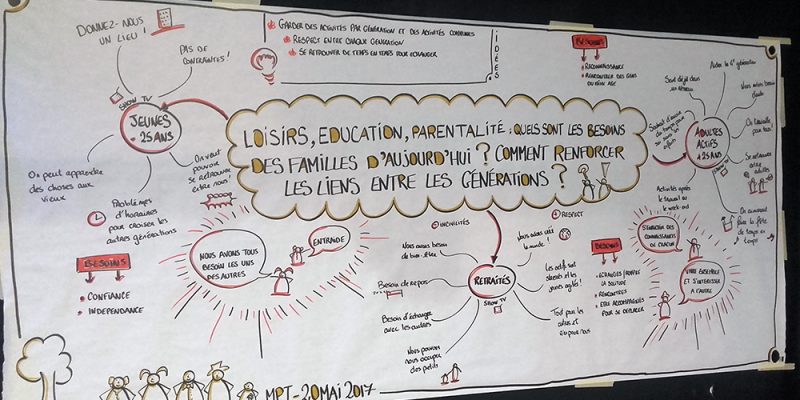 DONNEZ-NOUS
UN LIEU !
PAS DE
CONTRAINTES !
SHOW TV
JEUNES
- 25 ANS
On peut apprendre
des choses aux
vieux
Problèmes
d'horaires
pour croiser les
autres générations
On veut
pouvoir
se retrouver
entre nous !
BESOINS
• CONFIANCE
• INDEPENDANCE
GARDER DES ACTIVITÉS PAR GÉNÉRATION ET DES ACTIVITÉS COMMUNES
RESPECT ENTRE CHAQUE GÉNÉRATION
SE RETROUVER DE TEMPS EN TEMPS POUR ECHANGER
IDÉES
LOISIRS, EDUCATION, PARENTALITÉ : QUELS SONT LES BESOINS
DES FAMILLES D'AUJOURD'HUI ? COMMENT RENFORCER
LES LIENS ENTRE LES GÉNÉRATIONS ?
NOUS AVONS TOUS
BESOIN LES UNS
DES AUTRES
ENTRAIDE
INCIVILITÉS
RESPECT
Nous avons besoin
de bien-être
Besoin de repos
Besoin d'échanger
avec les autres
Nous pouvons
nous occuper
des petits
RETRAITÉS
SHOW TV
Nous avons créé
le monde !
Les actifs sont
absents et les
jeunes agités !
Tout pour les
ados et
pour nous
BESOINS
RECONNAISSANCE
RENCONTRER DES GENS
DU MÊME AGE
Aider la 4e génération
ADULTES
ACTIFS
+ 25 ANS
On travaille
pour tous !
Se retrouver
entre
adultes
On aimerait
faire la fête
de temps en
temps
Activités après
le travail ou
le week-end
BESOINS
RENCONTRES
ETRE ACCOMPAGNÉS
POUR SE DÉPLACER
S'ENRICHIR DES
CONNAISSANCES
DE CHACUN
VIVRE ENSEMBLE
ET S'INTÉRESSER
A L'AUTRE
MPT - 20 MAI 2017